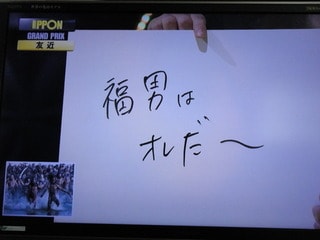 IPPON
GRAND PRIX
友近
福男は
オレだ〜